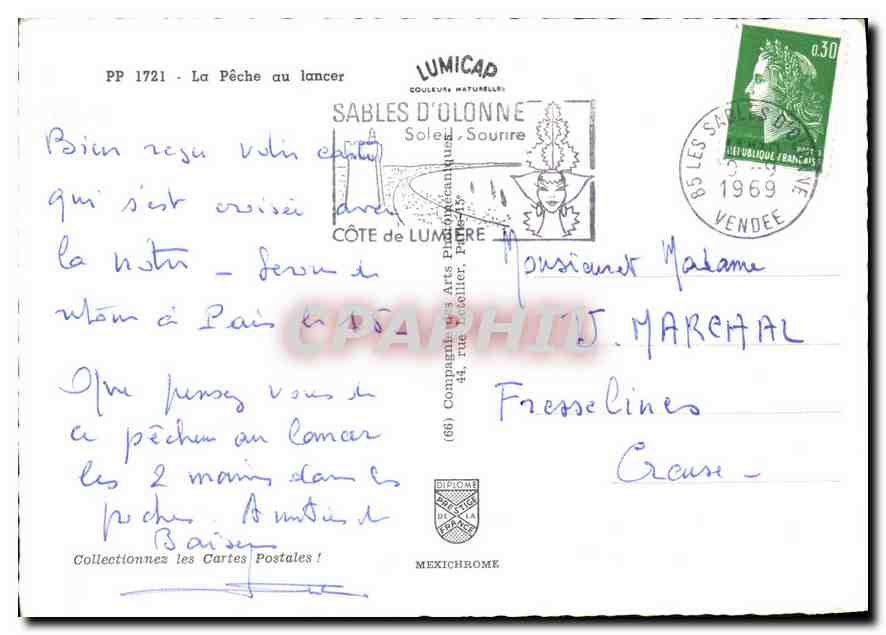 PP 1721 - La Pêche au lancer
LUMICAP
COULEURS NATURELLES
SABLES D'OLONNE
Soleil, Sourire
CÔTE de LUMIÈRE
0,30
POSTES
REPUBLIQUE FRANÇAISE
85 LES SABLES D'OLONNE
1969
VENDEE
Bien reçu votre carte
qui s'est croisée avec
la nôtre - Serons de
retour à Paris le 15 -
Que pensez vous de
ce pêcheur au lancer
les 2 mains dans les
poches. Amitiés de
Baisers
Collectionnez les Cartes Postales !
(66) Compagnie des Arts Photomécaniques
44, rue Letellier, Paris-15e
Monsieur et Madame
MARCHAL
Fresselines
Creuse -
DIPLOME
PRESTIGE
DE LA
FRANCE
MEXICHROME
CPAPHIL